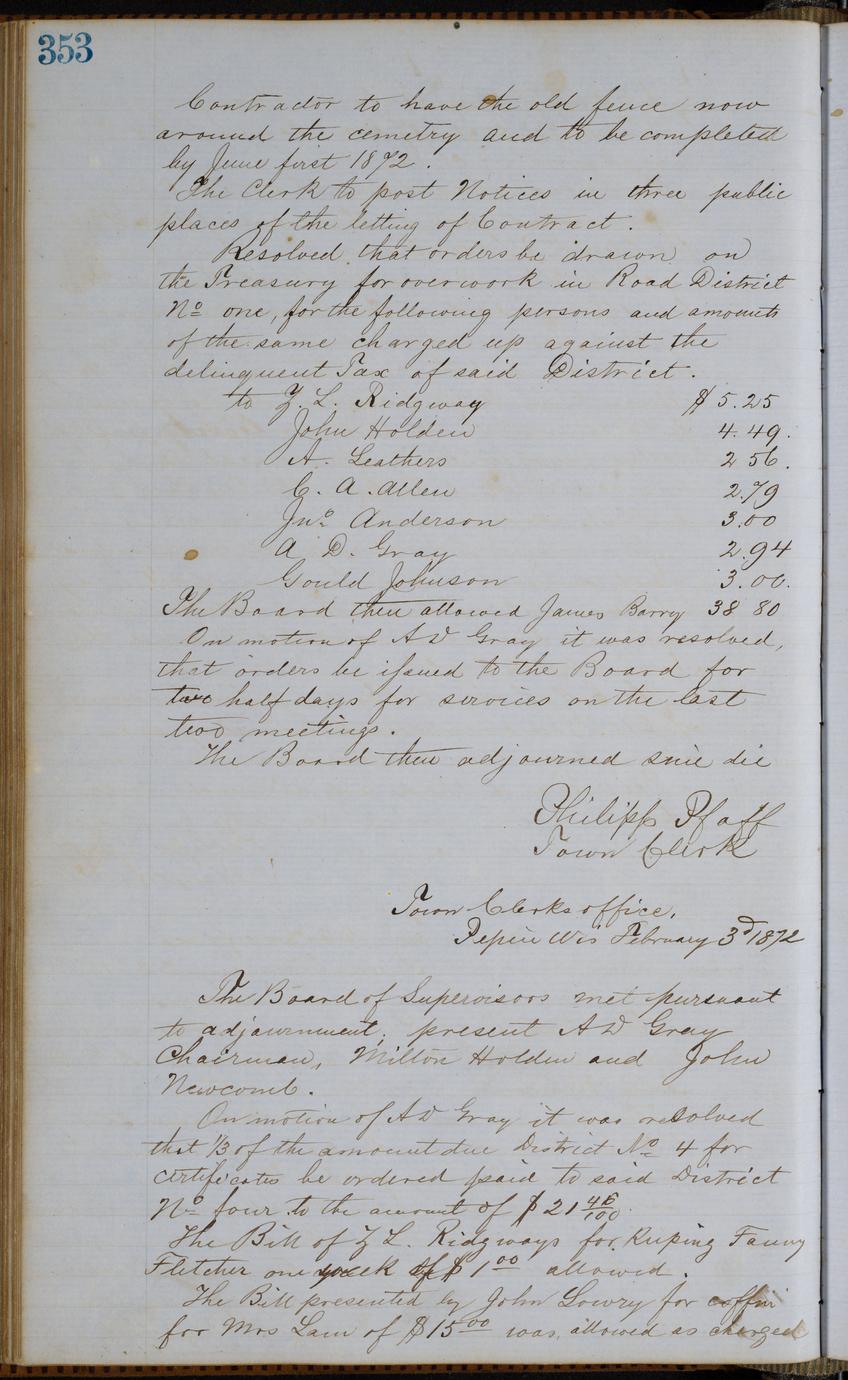 353
Contractor to have the old fence now
around the cemetry and to be completed
by June first 1872.
The Clerk to post Notices in three public
places of the letting of Contract.
Resolved that orders be drawn on
the Treasury for overwork in Road District
No one, for the following persons and amounts
of the same charged up against the
delinquent Tax of said District.
to Z. L. Ridgway $5.25
John Holden 4.49.
A. Leathers 2 56.
C. A. Allen 2.79
Jno. Anderson 3.00
A D. Gray 2.94
Gould Johnson 3.00.
The Board then allowed James Barry 38 80
On motion of A D Gray it was resolved,
that orders be issued to the Board for
two half days for services on the last
two meetings.
The Board then adjourned snie die
Philipp Pfaff
Town Clerk
Town Clerks office,
Pepin Wis February 3d 1872
The Board of Supervisors met pursuant
to adjournment; present A D Gray
Chairman, Milton Holden and John
Newcomb.
On motion of A D Gray it was resolved
that 1/3 of the amount due District No 4 for
certificates be ordered paid to said District
No four to the amount of $21 46/100
The Bill of Z L. Ridgways for Kuping Fanny
Fletcher one week of $1 00 allowed.
The Bill presented by John Lowry for coffin
for Mrs Lam of $15 00 was allowed as charged